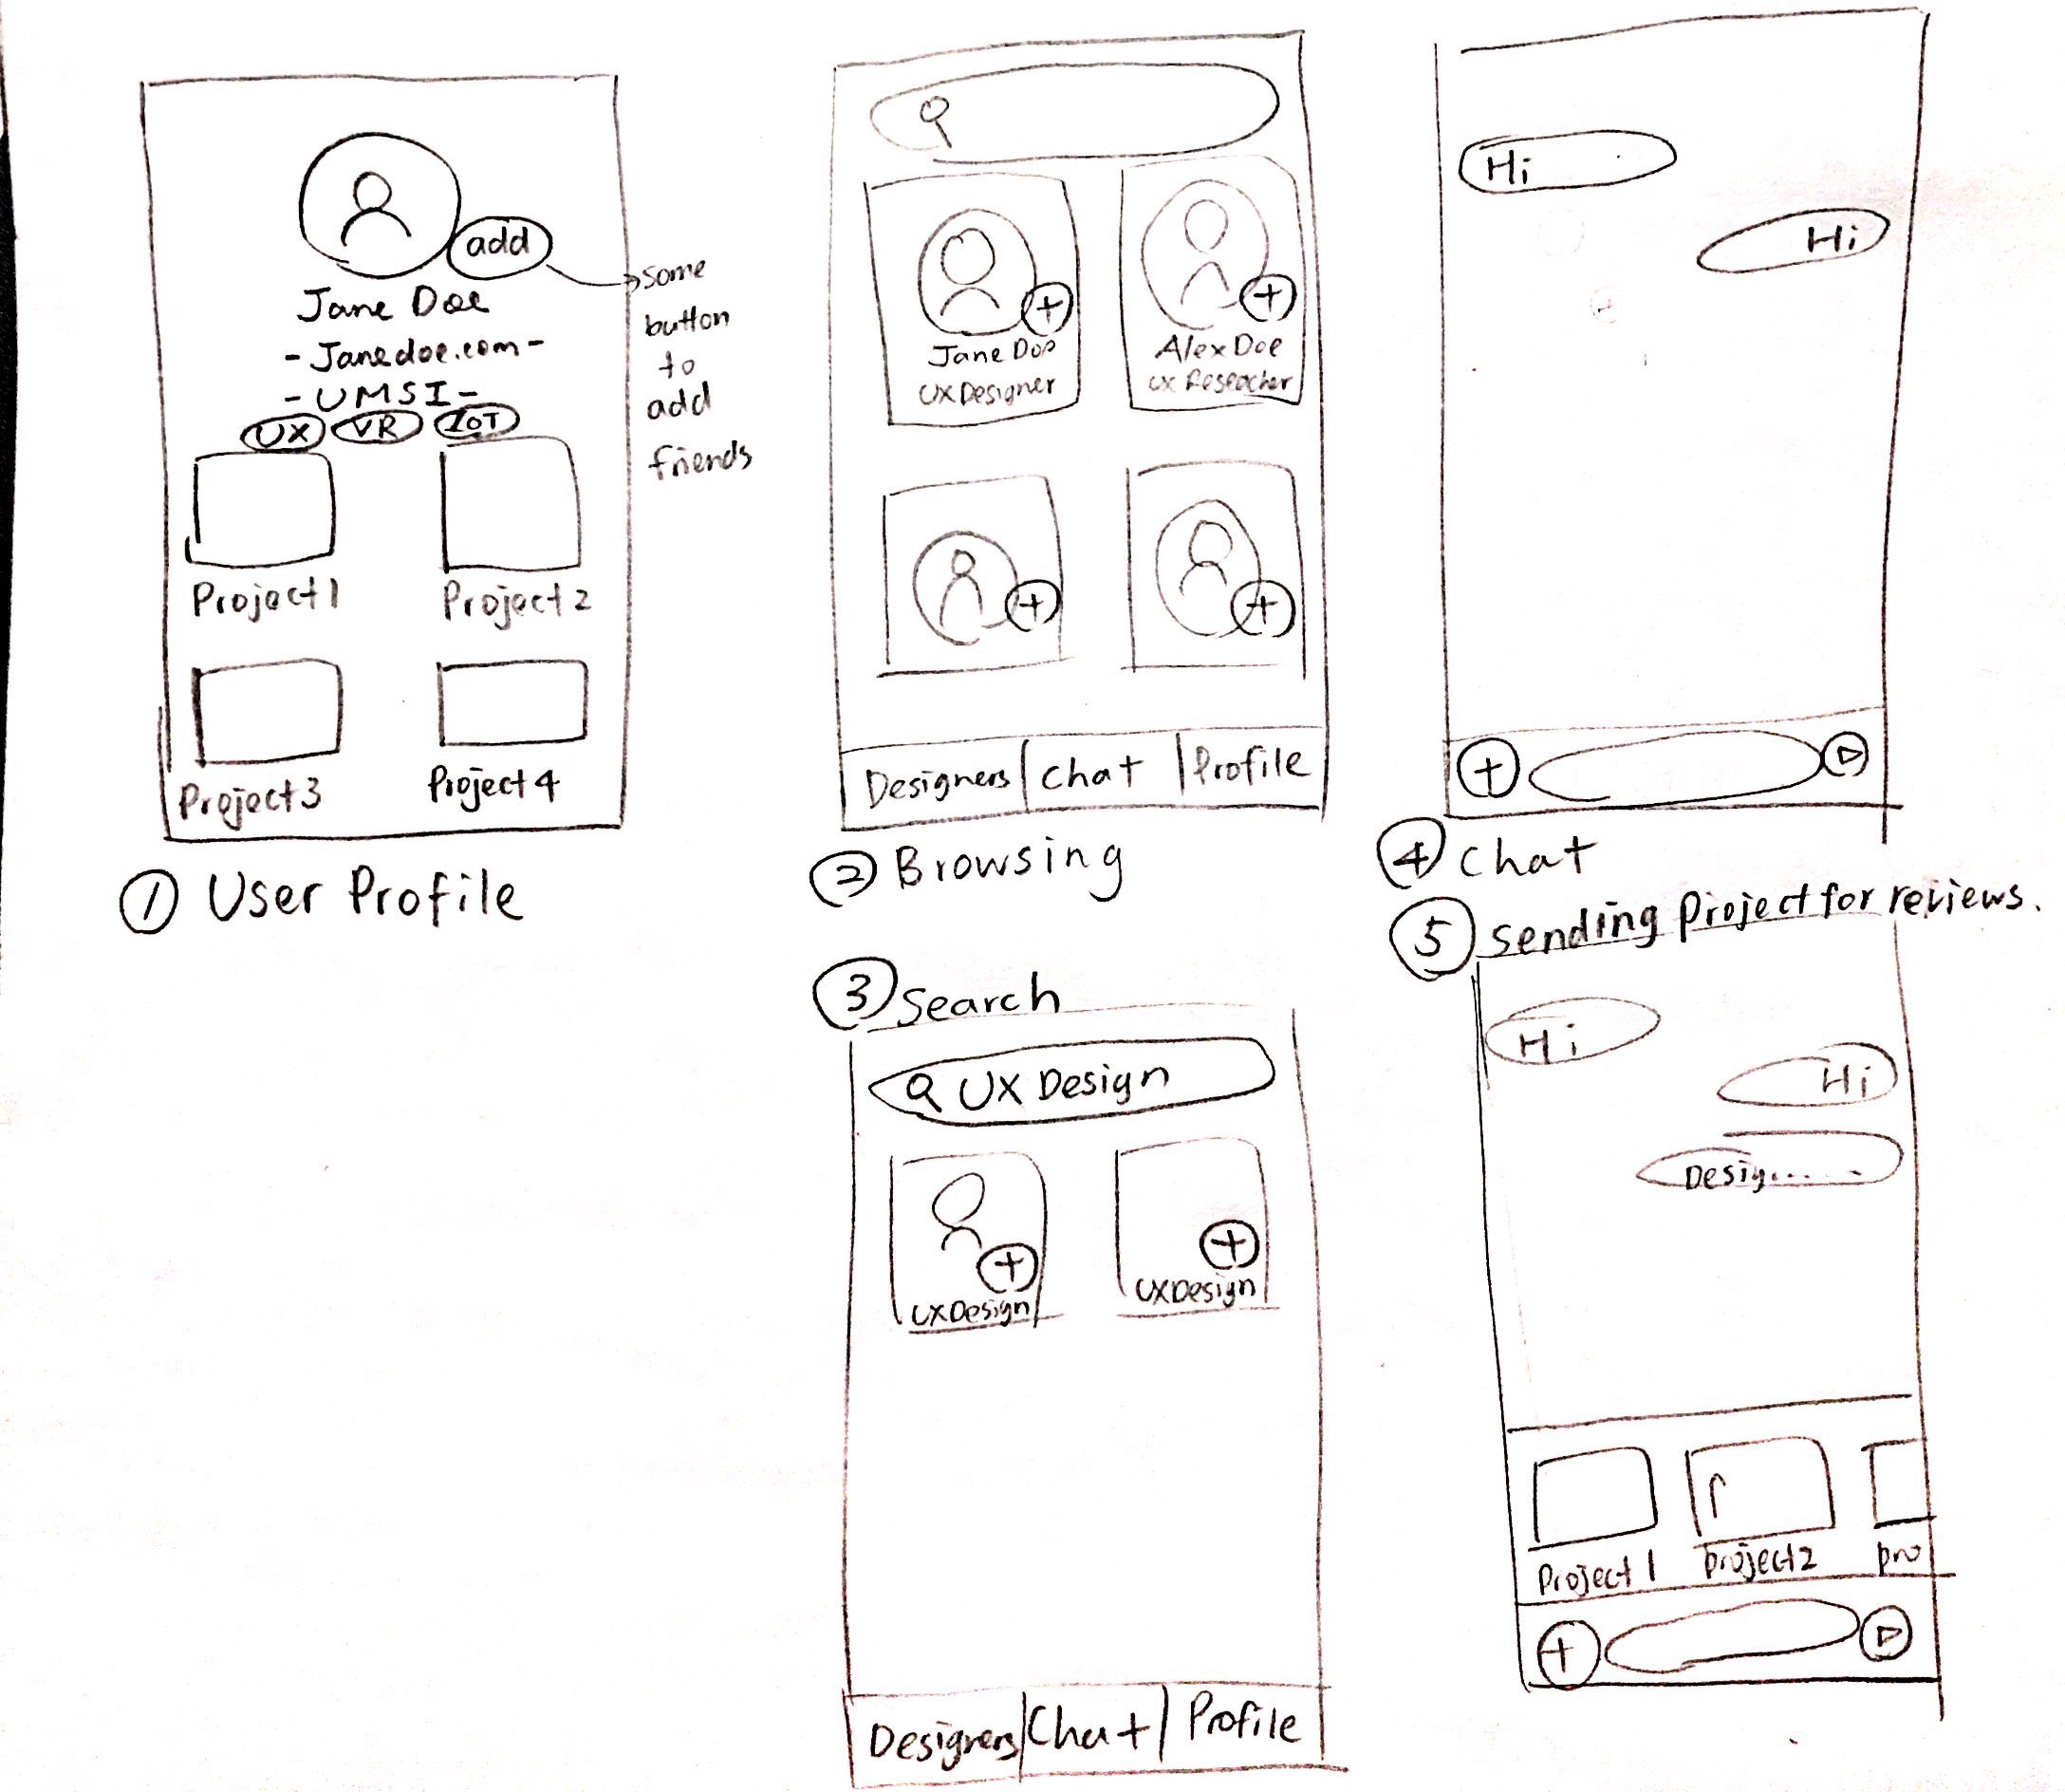 add
Jane Doe
-Janedoe.com-
-UMSI-
UX VR IoT
Project 1
Project 2
Project 3
Project 4
some
button
to
add
friends
① User Profile
Jane Doe
UX Designer
Alex Doe
UX Reseacher
Designers Chat Profile
② Browsing
③ Search
UX Design
UX Design
UX Design
Designers Chat Profile
Hi
Hi
④ Chat
⑤ Sending Project for reviews.
Hi
Hi
Desig......
Project 1
project 2
pro